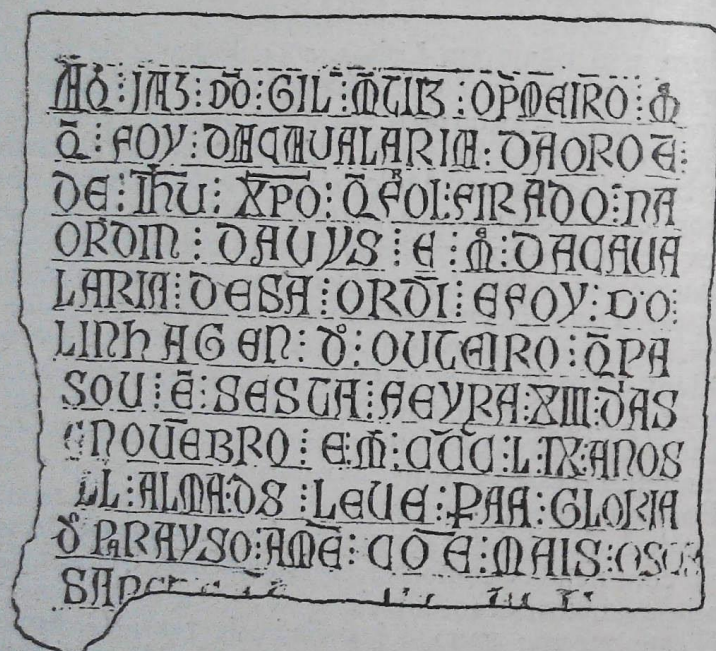 AQ̄ : JAZ : DÕ : GIL : M̃TIIZ : OP̃MEIRO : M̊
Q̄ : FOY : DACAUALARIA : DAORDẼ :
DE : IHU : XPO : Q̄ FOI : FIRADO : NA
ORDIM : DAUYS : E : M̊ : DACAUA
LARIA : DESA : ORDĨ : EFOY : DO :
LINHAGEN : D̊ : OUTEIRO : Q̄PA
SOU : Ẽ : SESTA : FEYRA : XIII : DÅS
NOUẼBRO : E : M̃ : CCC : L : IX : ANOS
ALMA : DS : LEUE : PAA : GLORIA
D̊ PARAYSO : AMẼ : CÕ E : MAIS : OS